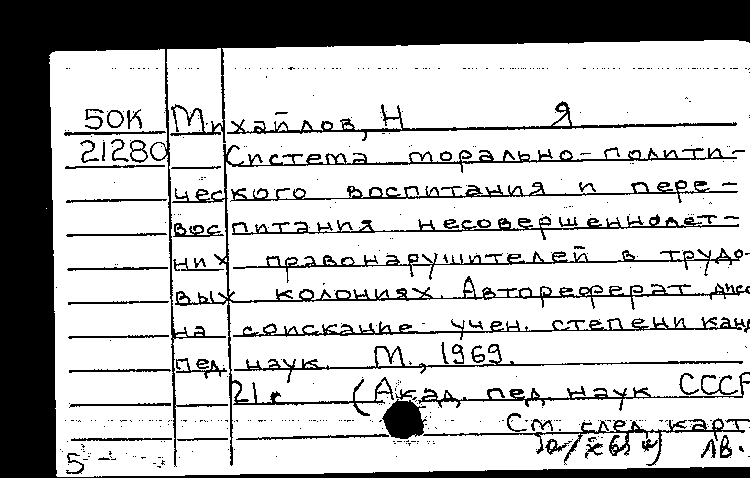 50К Михайлов, Н Я
21280 Система морально-полити-
ческого воспитания и пере-
воспитания несовершеннолет-
них правонарушителей в трудо-
вых колониях. Автореферат дисс
на соискание учен. степени канд
пед. наук. М., 1969.
21 с (Акад. пед. наук СССР
См. след. карт
5- лв.